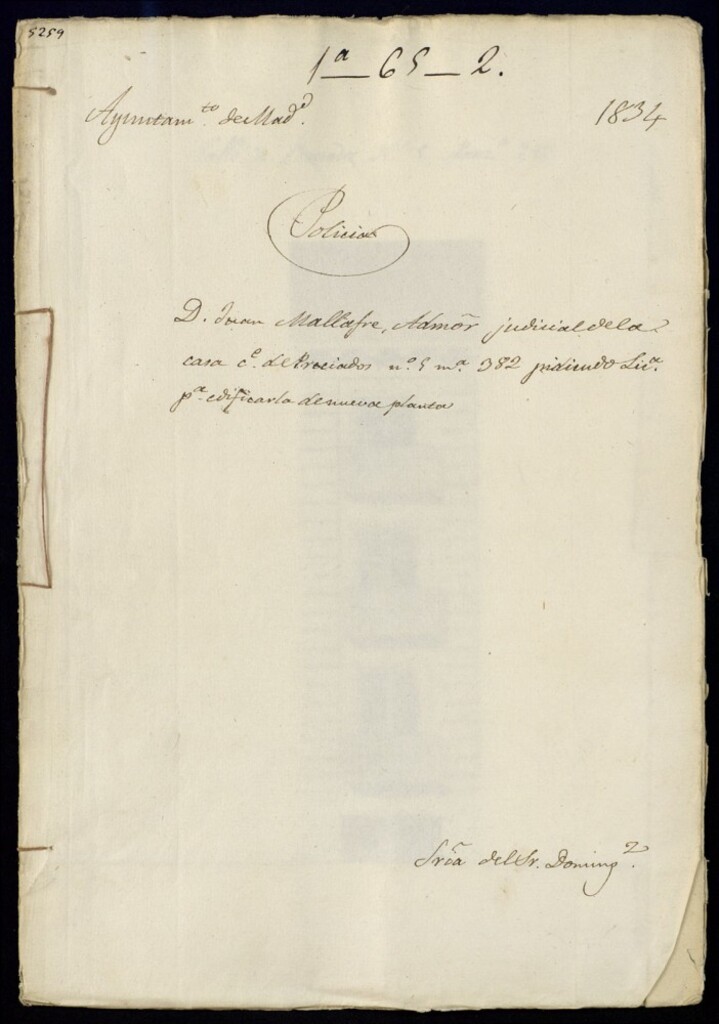 5259
1ª — 65 — 2.
Ayuntam.to de Mad.d
1834
Policia
D. Juan Mallafre, Admõr judicial de la
casa c.e de Preciados n.º 5 m.a 382 pidiendo Lic.a
p.a edificarla de nueva planta
Srĩa del Sr. Doming.z